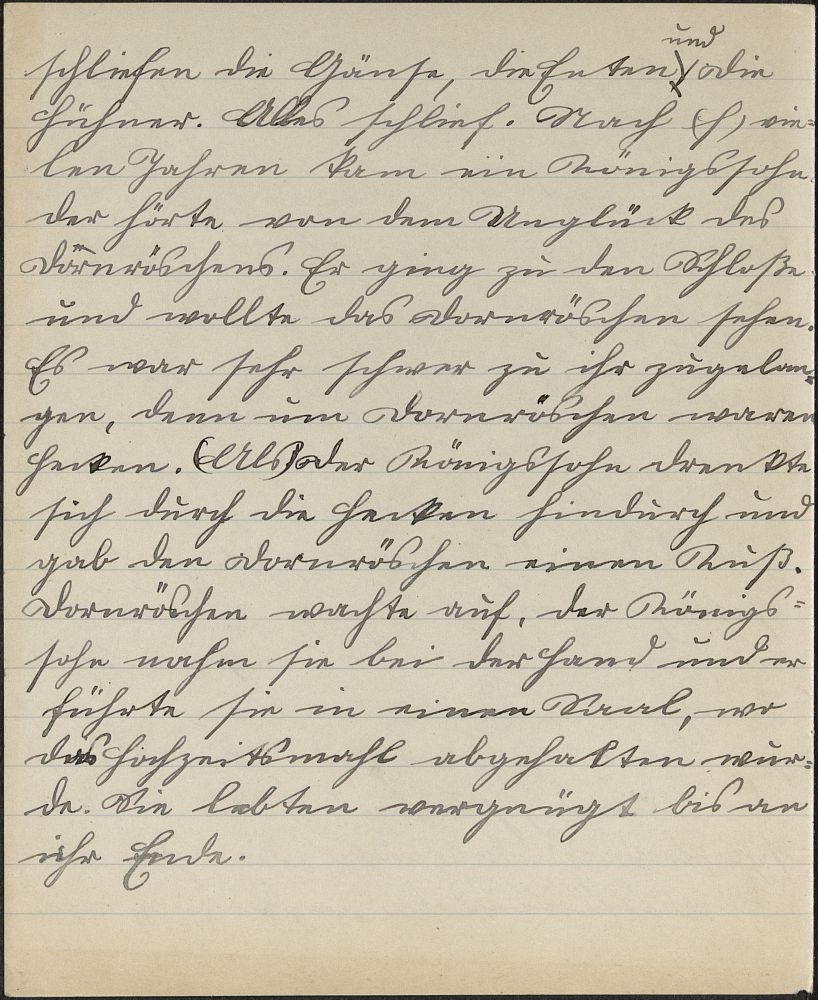 und
schliefen die Gänse, die Enten, die
Hühner. Alles schlief. Nach (f) vie=
len Jahren kam ein Königssohn
der hörte von dem Unglück des
Dornröschens. Er ging zu den Schloße
und wollte das Dornröschen sehen.
Es war sehr schwer zu ihr zugelan=
gen, denn um Dornröschen waren
Hecken. (Als) der Königssohn drenkte
sich durch die Hecken hindurch und
gab den Dornröschen einen Kuß.
Dornröschen wachte auf, der Königs=
sohn nahm sie bei der Hand und er
führte sie in einen Saal, wo
das Hochzeitsmahl abgehalten wur=
de. Sie lebten vergnügt bis an
ihr Ende.